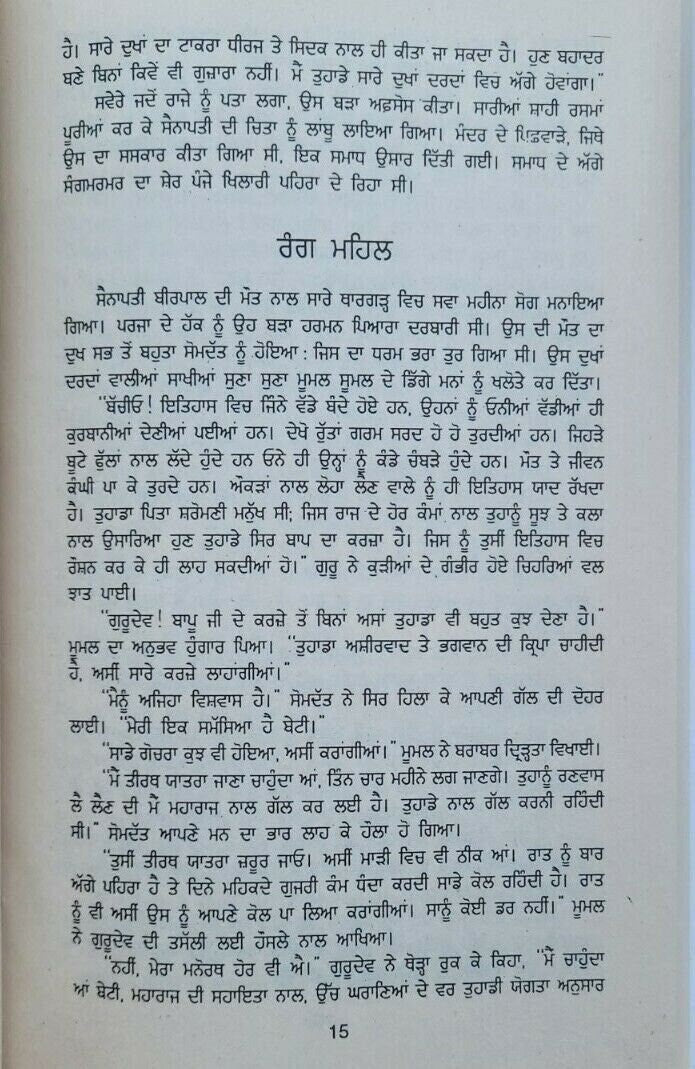 ਹੈ। ਸਾਰੇ ਦੁਖਾਂ ਦਾ ਟਾਕਰਾ ਧੀਰਜ ਤੇ ਸਿਦਕ ਨਾਲ ਹੀ ਕੀਤਾ ਜਾ ਸਕਦਾ ਹੈ। ਹੁਣ ਬਹਾਦਰ
ਬਣੇ ਬਿਨਾਂ ਕਿਵੇਂ ਵੀ ਗੁਜ਼ਾਰਾ ਨਹੀਂ। ਮੈਂ ਤੁਹਾਡੇ ਸਾਰੇ ਦੁਖਾਂ ਦਰਦਾਂ ਵਿਚ ਅੱਗੇ ਹੋਵਾਂਗਾ।"
ਸਵੇਰੇ ਜਦੋਂ ਰਾਜੇ ਨੂੰ ਪਤਾ ਲਗਾ, ਉਸ ਬੜਾ ਅਫ਼ਸੋਸ ਕੀਤਾ। ਸਾਰੀਆਂ ਸ਼ਾਹੀ ਰਸਮਾਂ
ਪੂਰੀਆਂ ਕਰ ਕੇ ਸੈਨਾਪਤੀ ਦੀ ਚਿਤਾ ਨੂੰ ਲਾਂਬੂ ਲਾਇਆ ਗਿਆ। ਮੰਦਰ ਦੇ ਪਿਛਵਾੜੇ, ਜਿਥੇ
ਉਸ ਦਾ ਸਸਕਾਰ ਕੀਤਾ ਗਿਆ ਸੀ, ਇਕ ਸਮਾਧ ਉਸਾਰ ਦਿੱਤੀ ਗਈ। ਸਮਾਧ ਦੇ ਅੱਗੇ
ਸੰਗਮਰਮਰ ਦਾ ਸ਼ੇਰ ਪੰਜੇ ਖਿਲਾਰੀ ਪਹਿਰਾ ਦੇ ਰਿਹਾ ਸੀ।
ਰੰਗ ਮਹਿਲ
ਸੈਨਾਪਤੀ ਬੀਰਪਾਲ ਦੀ ਮੌਤ ਨਾਲ ਸਾਰੇ ਥਾਰਗੜ੍ਹ ਵਿਚ ਸਵਾ ਮਹੀਨਾ ਸੋਗ ਮਨਾਇਆ
ਗਿਆ। ਪਰਜਾ ਦੇ ਹੱਕ ਨੂੰ ਉਹ ਬੜਾ ਹਰਮਨ ਪਿਆਰਾ ਦਰਬਾਰੀ ਸੀ। ਉਸ ਦੀ ਮੌਤ ਦਾ
ਦੁਖ ਸਭ ਤੋਂ ਬਹੁਤਾ ਸੋਮਦੱਤ ਨੂੰ ਹੋਇਆ : ਜਿਸ ਦਾ ਧਰਮ ਭਰਾ ਤੁਰ ਗਿਆ ਸੀ। ਉਸ ਦੁਖਾਂ
ਦਰਦਾਂ ਵਾਲੀਆਂ ਸਾਖੀਆਂ ਸੁਣਾ ਸੁਣਾ ਮੂਮਲ ਸੂਮਲ ਦੇ ਡਿੱਗੇ ਮਨਾਂ ਨੂੰ ਖਲੋਤੇ ਕਰ ਦਿੱਤਾ।
"ਬੱਚੀਓ! ਇਤਿਹਾਸ ਵਿਚ ਜਿੰਨੇ ਵੱਡੇ ਬੰਦੇ ਹੋਏ ਹਨ, ਉਹਨਾਂ ਨੂੰ ਓਨੀਆਂ ਵੱਡੀਆਂ ਹੀ
ਕੁਰਬਾਨੀਆਂ ਦੇਣੀਆਂ ਪਈਆਂ ਹਨ। ਦੇਖੋ ਰੁੱਤਾਂ ਗਰਮ ਸਰਦ ਹੋ ਹੋ ਤੁਰਦੀਆਂ ਹਨ। ਜਿਹੜੇ
ਬੂਟੇ ਫੁੱਲਾਂ ਨਾਲ ਲੱਦੇ ਹੁੰਦੇ ਹਨ ਓਨੇ ਹੀ ਉਨ੍ਹਾਂ ਨੂੰ ਕੰਡੇ ਚੰਬੜੇ ਹੁੰਦੇ ਹਨ। ਮੌਤ ਤੇ ਜੀਵਨ
ਕੰਘੀ ਪਾ ਕੇ ਤੁਰਦੇ ਹਨ। ਔਕੜਾਂ ਨਾਲ ਲੋਹਾ ਲੈਣ ਵਾਲੇ ਨੂੰ ਹੀ ਇਤਿਹਾਸ ਯਾਦ ਰੱਖਦਾ
ਹੈ। ਤੁਹਾਡਾ ਪਿਤਾ ਸ਼ਰੋਮਣੀ ਮਨੁੱਖ ਸੀ; ਜਿਸ ਰਾਜ ਦੇ ਹੋਰ ਕੰਮਾਂ ਨਾਲ ਤੁਹਾਨੂੰ ਸੂਝ ਤੇ ਕਲਾ
ਨਾਲ ਉਸਾਰਿਆ ਹੁਣ ਤੁਹਾਡੇ ਸਿਰ ਬਾਪ ਦਾ ਕਰਜ਼ਾ ਹੈ। ਜਿਸ ਨੂੰ ਤੁਸੀਂ ਇਤਿਹਾਸ ਵਿਚ
ਰੌਸ਼ਨ ਕਰ ਕੇ ਹੀ ਲਾਹ ਸਕਦੀਆਂ ਹੋ।" ਗੁਰੂ ਨੇ ਕੁੜੀਆਂ ਦੇ ਗੰਭੀਰ ਹੋਏ ਚਿਹਰਿਆਂ ਵਲ
ਝਾਤ ਪਾਈ।
"ਗੁਰੂਦੇਵ! ਬਾਪੂ ਜੀ ਦੇ ਕਰਜ਼ੇ ਤੋਂ ਬਿਨਾਂ ਅਸਾਂ ਤੁਹਾਡਾ ਵੀ ਬਹੁਤ ਕੁਝ ਦੇਣਾ ਹੈ।"
ਮੂਮਲ ਦਾ ਅਨੁਭਵ ਹੁੰਗਾਰ ਪਿਆ। "ਤੁਹਾਡਾ ਅਸ਼ੀਰਵਾਦ ਤੇ ਭਗਵਾਨ ਦੀ ਕ੍ਰਿਪਾ ਚਾਹੀਦੀ
ਹੈ, ਅਸੀਂ ਸਾਰੇ ਕਰਜ਼ੇ ਲਾਹਾਂਗੀਆਂ।"
"ਮੈਨੂੰ ਅਜਿਹਾ ਵਿਸ਼ਵਾਸ ਹੈ।" ਸੋਮਦੱਤ ਨੇ ਸਿਰ ਹਿਲਾ ਕੇ ਆਪਣੀ ਗੱਲ ਦੀ ਦੋਹਰ
ਲਾਈ। "ਮੇਰੀ ਇਕ ਸਮੱਸਿਆ ਹੈ ਬੇਟੀ।"
"ਸਾਡੇ ਗੋਚਰਾ ਕੁਝ ਵੀ ਹੋਇਆ, ਅਸੀਂ ਕਰਾਂਗੀਆਂ।" ਮੂਮਲ ਨੇ ਬਰਾਬਰ ਦ੍ਰਿੜ੍ਹਤਾ ਵਿਖਾਈ।
"ਮੈਂ ਤੀਰਥ ਯਾਤਰਾ ਜਾਣਾ ਚਾਹੁੰਦਾ ਆਂ, ਤਿੰਨ ਚਾਰ ਮਹੀਨੇ ਲਗ ਜਾਣਗੇ। ਤੁਹਾਨੂੰ ਰਣਵਾਸ
ਲੈ ਲੈਣ ਦੀ ਮੈਂ ਮਹਾਰਾਜ ਨਾਲ ਗੱਲ ਕਰ ਲਈ ਹੈ। ਤੁਹਾਡੇ ਨਾਲ ਗੱਲ ਕਰਨੀ ਰਹਿੰਦੀ
ਸੀ।" ਸੋਮਦੱਤ ਆਪਣੇ ਮਨ ਦਾ ਭਾਰ ਲਾਹ ਕੇ ਹੌਲਾ ਹੋ ਗਿਆ।
"ਤੁਸੀਂ ਤੀਰਥ ਯਾਤਰਾ ਜ਼ਰੂਰ ਜਾਓ। ਅਸੀਂ ਮਾੜੀ ਵਿਚ ਵੀ ਠੀਕ ਆਂ। ਰਾਤ ਨੂੰ ਬਾਰ
ਅੱਗੇ ਪਹਿਰਾ ਹੈ ਤੇ ਦਿਨੇ ਮਹਿਕਦੇ ਗੁਜਰੀ ਕੰਮ ਧੰਦਾ ਕਰਦੀ ਸਾਡੇ ਕੋਲ ਰਹਿੰਦੀ ਹੈ। ਰਾਤ
ਨੂੰ ਵੀ ਅਸੀਂ ਉਸ ਨੂੰ ਆਪਣੇ ਕੋਲ ਪਾ ਲਿਆ ਕਰਾਂਗੀਆਂ। ਸਾਨੂੰ ਕੋਈ ਡਰ ਨਹੀਂ।" ਮੂਮਲ
ਨੇ ਗੁਰੂਦੇਵ ਦੀ ਤਸੱਲੀ ਲਈ ਹੌਸਲੇ ਨਾਲ ਆਖਿਆ।
"ਨਹੀਂ, ਮੇਰਾ ਮਨੋਰਥ ਹੋਰ ਵੀ ਐ।" ਗੁਰੂਦੇਵ ਨੇ ਥੋੜ੍ਹਾ ਰੁਕ ਕੇ ਕਿਹਾ, "ਮੈਂ ਚਾਹੁੰਦਾ
ਆਂ ਬੇਟੀ, ਮਹਾਰਾਜ ਦੀ ਸਹਾਇਤਾ ਨਾਲ, ਉੱਚ ਘਰਾਣਿਆਂ ਦੇ ਵਰ ਤੁਹਾਡੀ ਯੋਗਤਾ ਅਨੁਸਾਰ
15